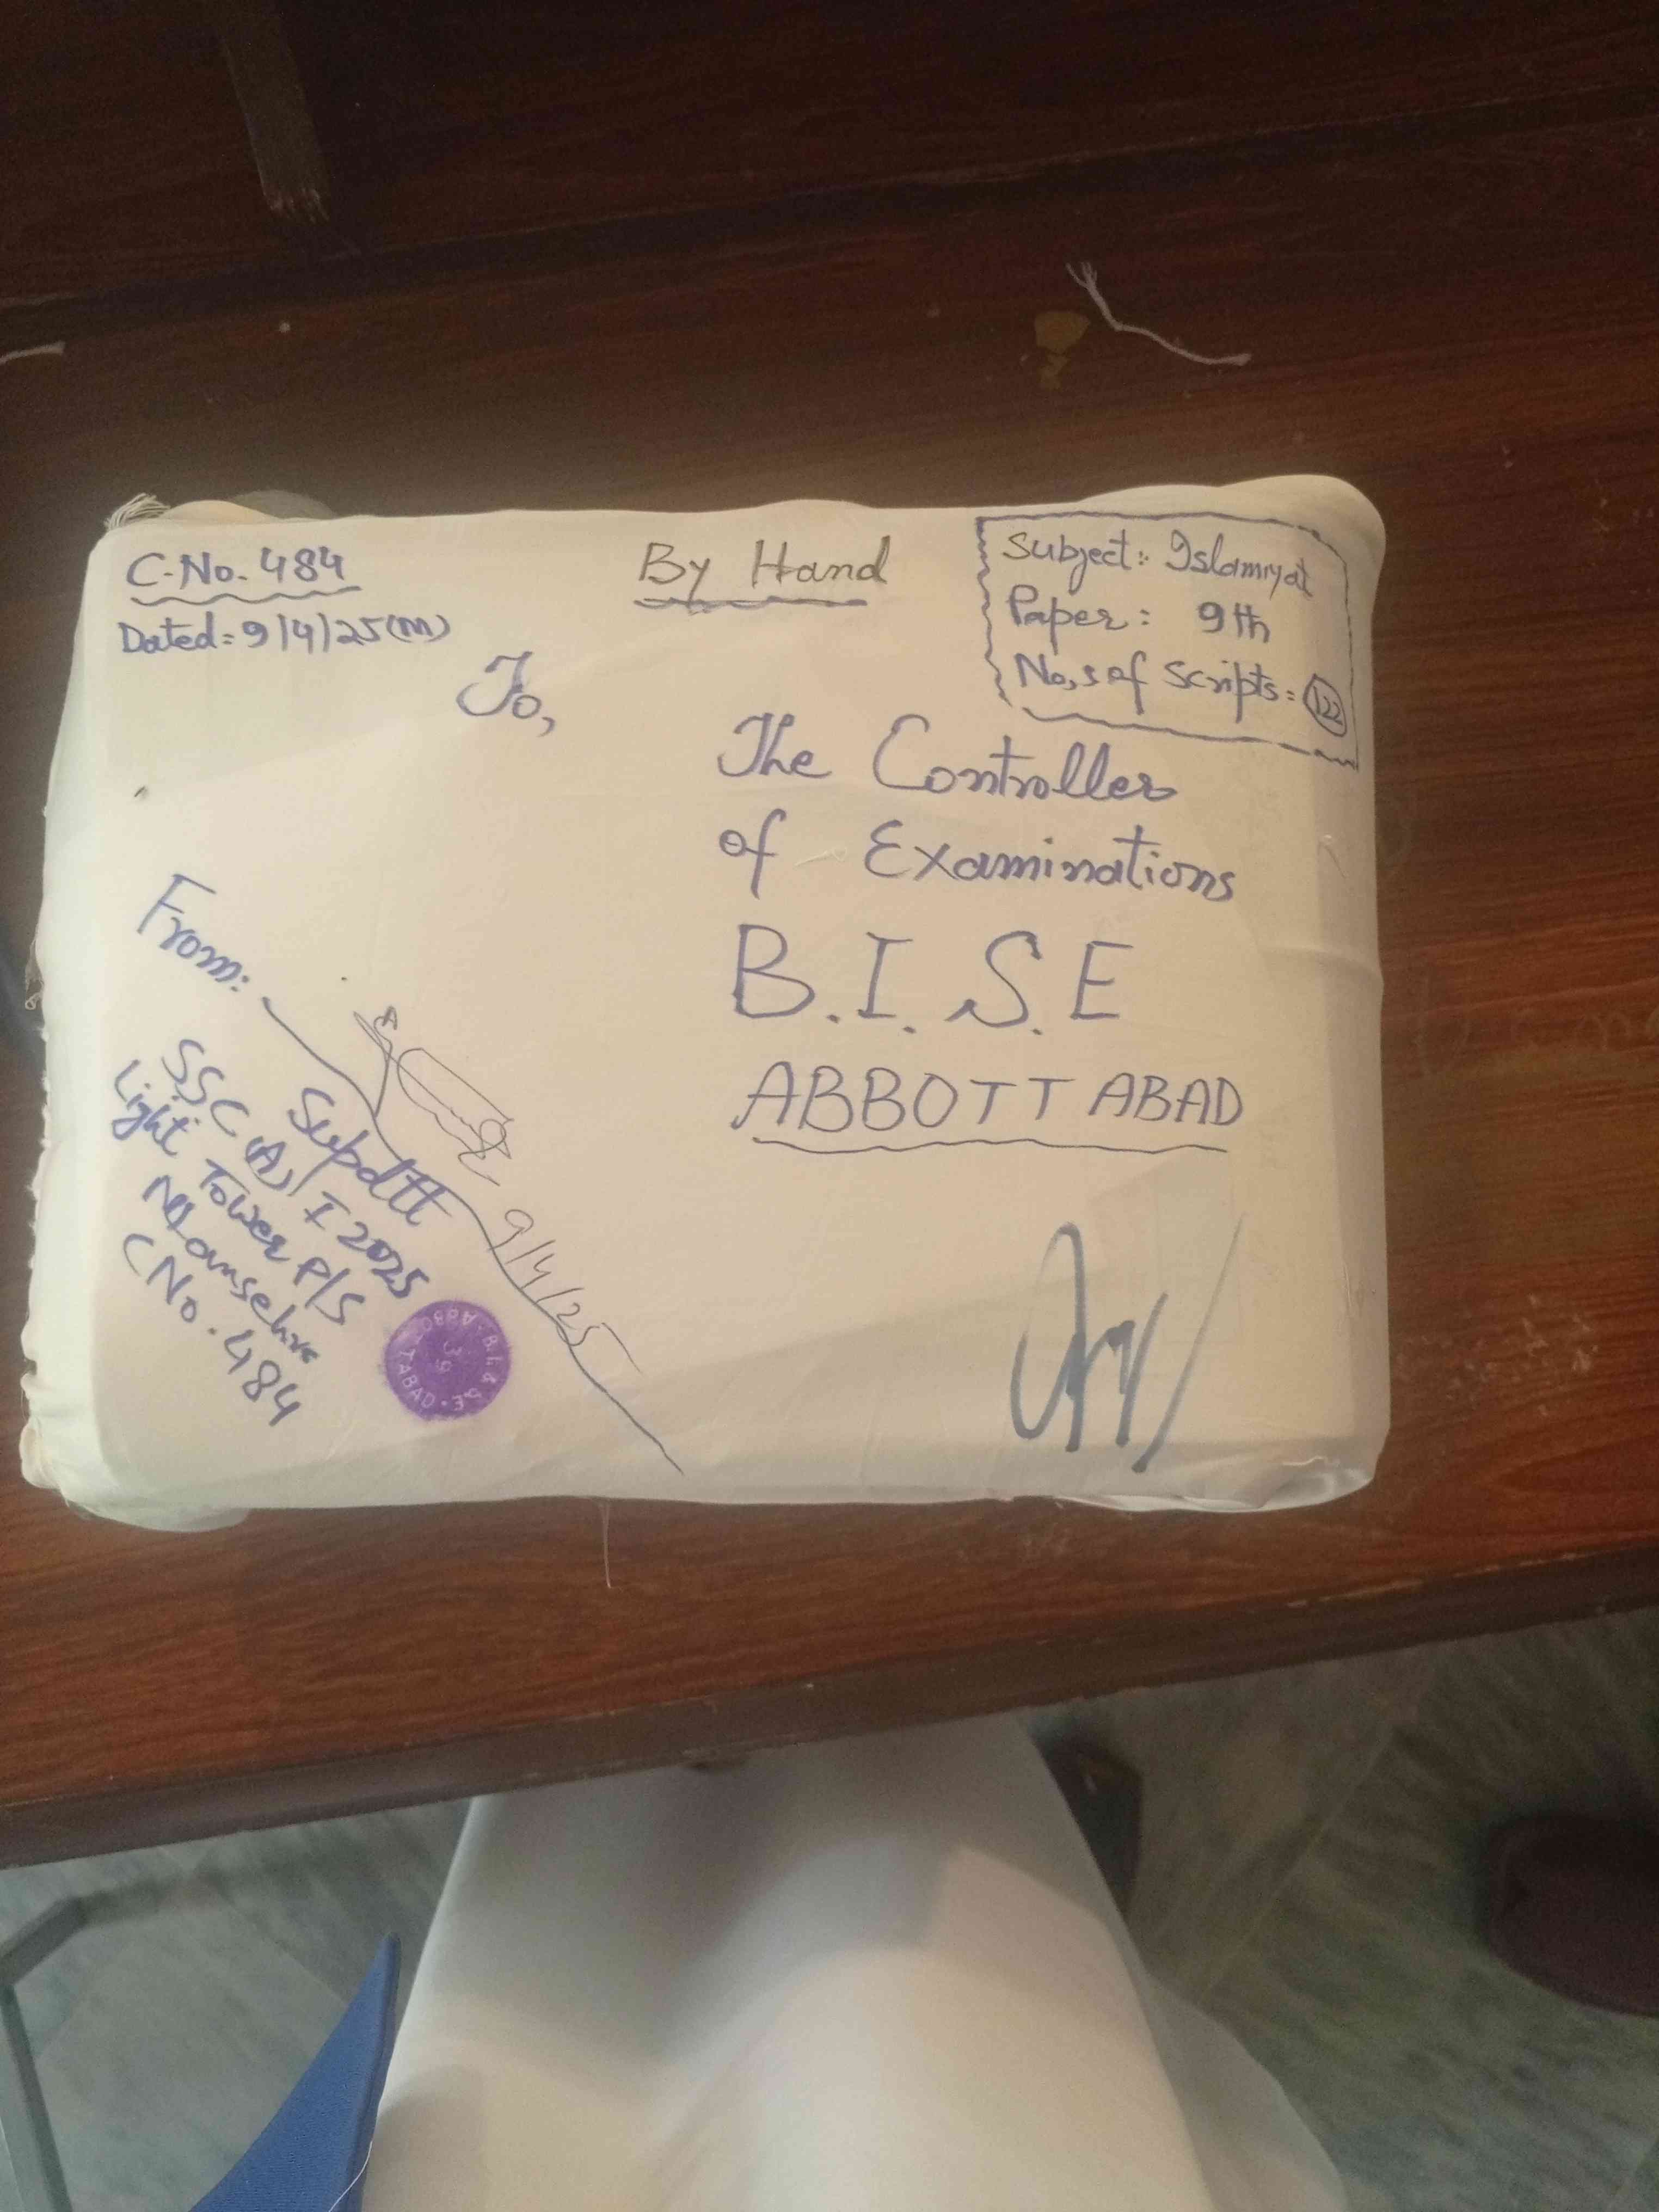 C.No. 484
Dated: 9/4/25(M)
By Hand
Subject: Islamiyat
Paper: 9th
No,s of Scripts = 122
To,
The Controller
of Examinations
B.I.S.E
ABBOTTABAD
From:
Supdtt
SSC (A) I 2025
Light Tower P/S
Mansehra
C No. 484
9/4/25
B.I.&S.E. ABBOTTABAD
39